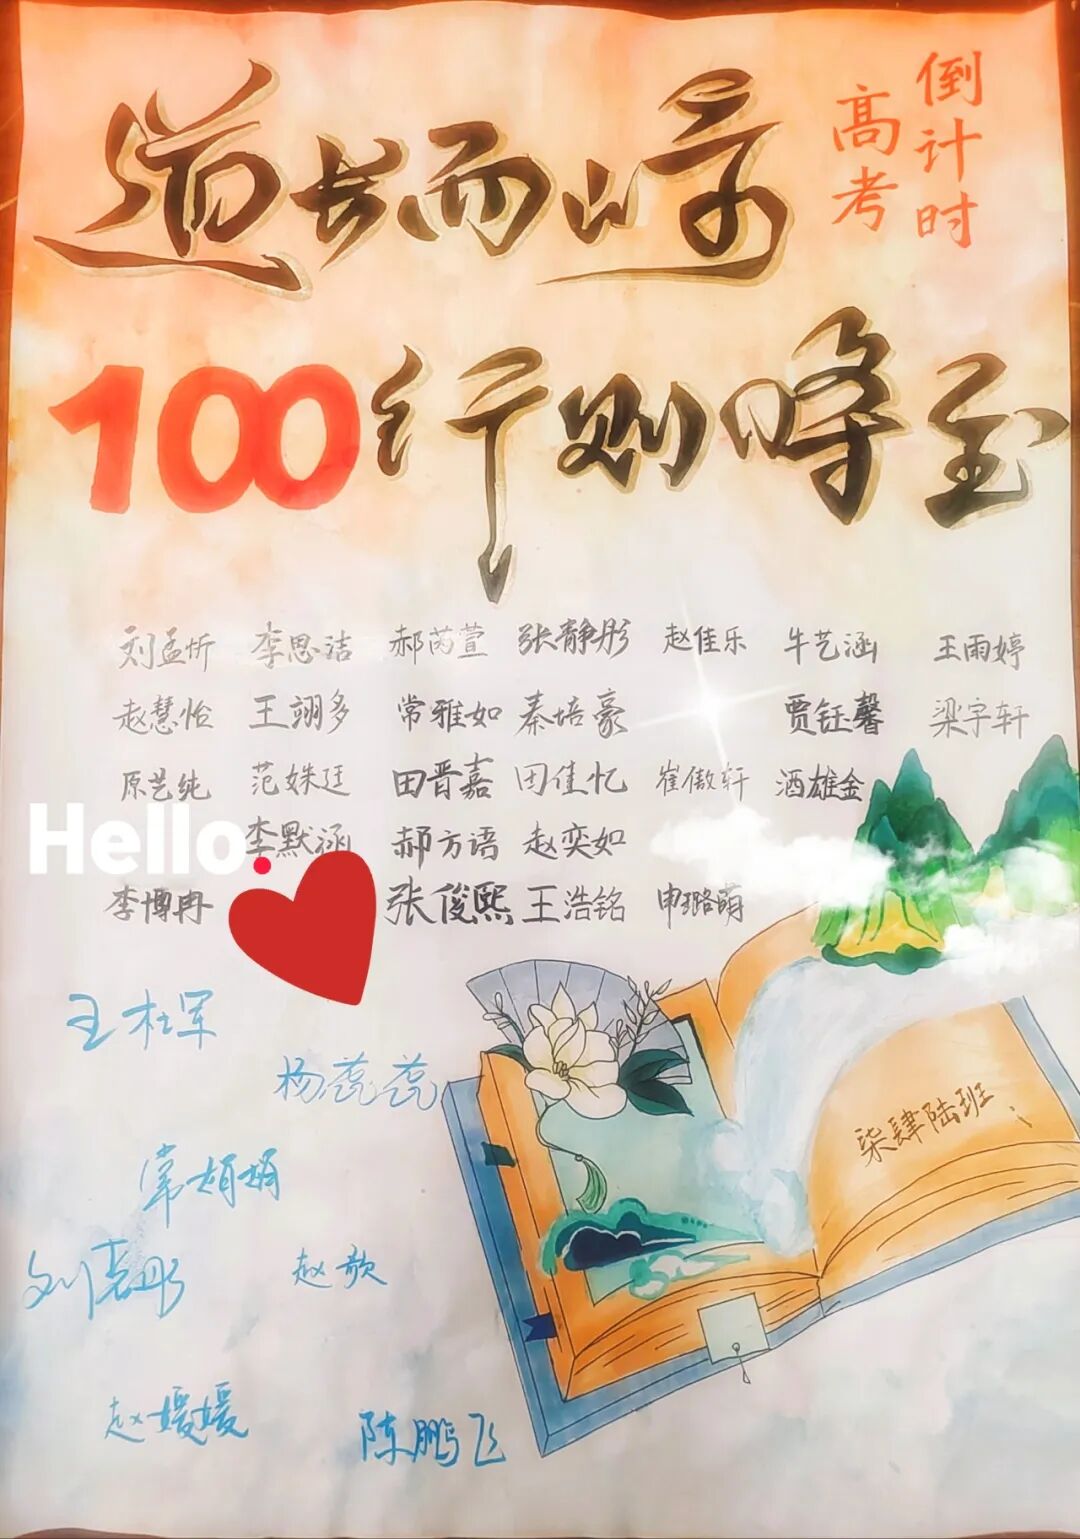 倒计时
高考
道长而崎
100 行则峰至
刘孟忻 李思洁 郝芮萱 张静彤 赵佳乐 牛艺涵 王雨婷
赵慧怡 王翊多 常雅如 秦培豪 贾钰馨 梁宇轩
原艺纯 范姝廷 田晋嘉 田佳忆 崔傲轩 酒雄金
Hello. 李默涵 郝方语 赵奕如
李博冉 张俊熙 王浩铭 申璐萌
王杜军
杨蕊蕊
柒肆陆班
常娟娟
刘志彤 赵歆
赵媛媛 陈鹏飞